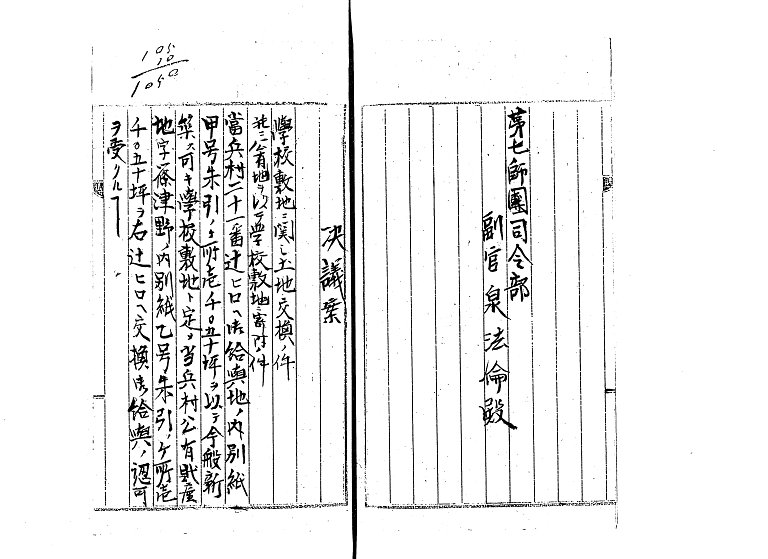 第七師團司令部
副官泉法倫殿
決議案
學校敷地ニ関シ土地交換ノ件
并ニ
有地ヲ以テ学校敷地ニ寄附ノ件
當兵村二十一番辻ヒロヘ御給與地ノ内別紙
甲号朱引ノヶ所壱千〇五十坪ヲ以テ今般新
築ス可キ學校敷地ト定メ当兵村公有財産
地字篠津野ノ内別紙乙号朱引ノヶ所壱
千〇五十坪ヲ右辻ヒロヘ交換御給與ノ認可
ヲ受クルヿ
105
10
1050